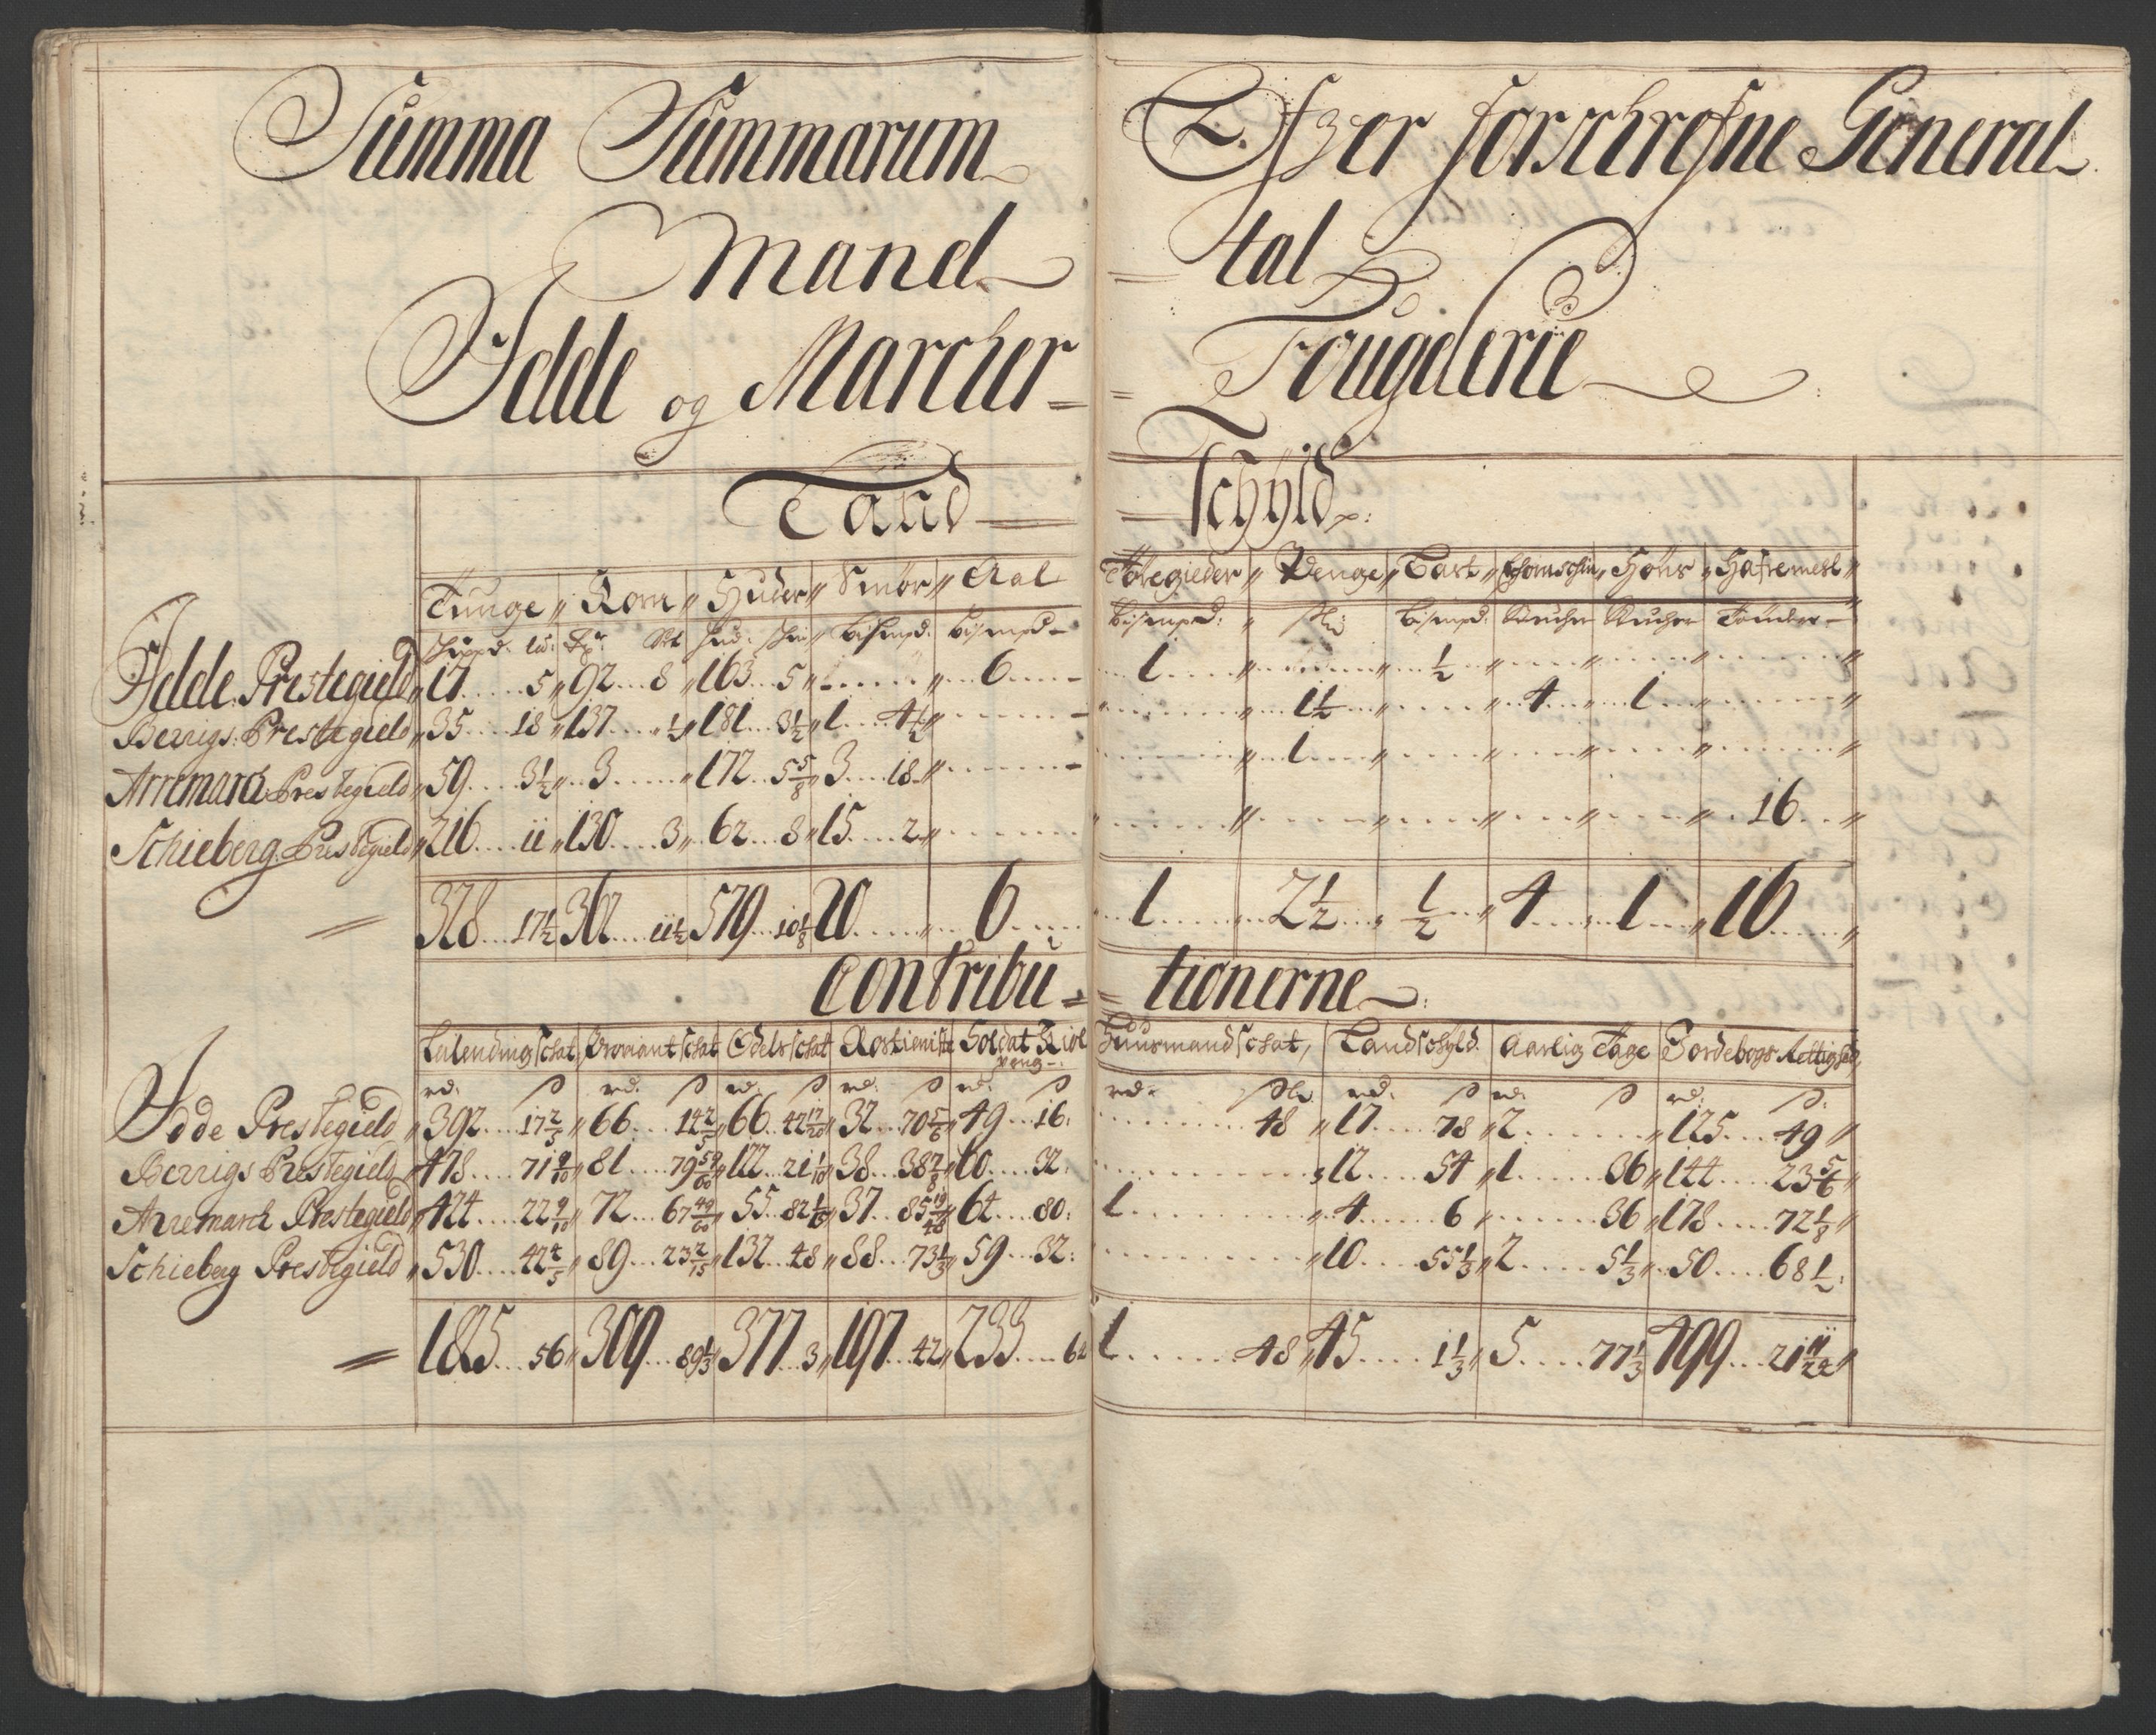 Summa Summarum Efter forschrefne General
Mand = tal
Idde og Marcher = Fougderie
Land = Schyld
Tunge " Korn " Huder " Smör " Aal Töregieder " Penge " Lax " " Höns " Hafremehl "
Idde Prestegield " 17 5 " 92 8 " 163 5 " " 6 1 " " 1/2 " " "
Berrigs Prestegield " 35 18 " 137 1/2 " 181 3 1/2 " 1 4 1/2 " " 1 1/2 " " 4 " 1 " "
Arremarch Prestegield " 59 3 1/2 " 3 " 172 5 5/8 " 3 18 " " 1 " " " "
Schieberg Prestegield " 216 11 " 130 3 " 62 8 " 15 2 " " " " " " 16 "
= 328 17 1/2 362 11 1/2 579 10 1/8 20 " 6 1 " 2 1/2 " 1/2 " 4 " 1 " 16 "
Contribu = tionerne
Leilendingschat, Proviantschat Odelsschat Rostieniste Soldat Huusmandschat, Landschyld Aarlig Tage Jordebogs Rettighed
peng
rd. s rd. s rd. s rd. s rd. s rd. s rd. s rd. s rd. s
Idde Prestegield " 392 17 2/5 " 66 14 2/5 " 66 42 17/20 " 32 70 5/6 " 49 16 48 " 17 78 " 2 " 125 49 "
Berrigs Prestegield " 478 71 9/10 " 81 79 59/60 " 122 21 1/10 " 38 38 7/8 " 60 32 " 12 54 " 1 36 " 144 23 5/6 "
Arremarch Prestegield " 424 22 9/10 " 72 67 49/60 " 55 82 1/15 " 37 85 19/48 " 64 80 1 " 4 6 " 36 " 178 72 1/8 "
Schieberg Prestegield " 530 42 4/5 " 89 23 2/15 " 132 48 " 88 73 1/3 " 59 32 " 10 55 1/3 " 2 5 1/3 " 50 68 1/2
= 1825 56 " 309 89 1/3 " 377 3 " 197 42 " 233 64 1 48 " 45 1 1/3 " 5 77 1/3 499 21 11/24 "